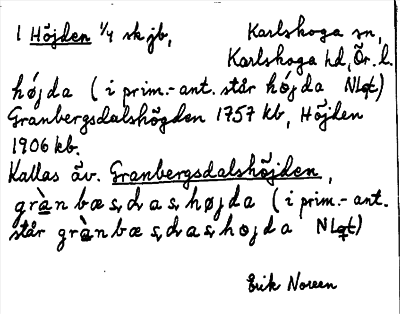 1 Höjden 1/4 sk jb, Karlskoga sn,
Karlskoga hd, Ör. l.
hø̀jda (i prim.-ant. står hø̀jda NLøt)
Granbergsdalshögden 1757 kb, Höjden
1906 kb.
Kallas äv. Granbergsdalshöjden,
gràn bæ s, d, a s, h ø j d a (i prim.-ant.
står gràn bæ s, d, a s, h ø j d a NLøt)
Erik Noreen